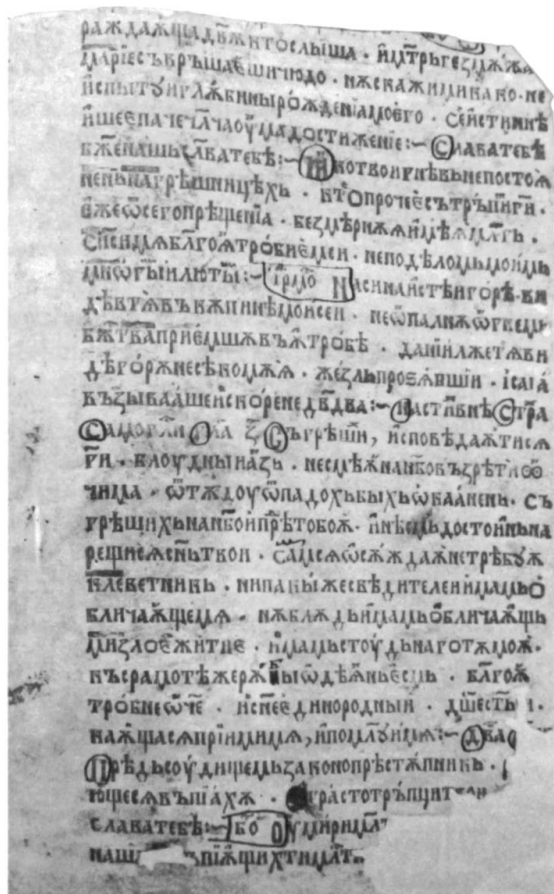 раждаѫщадв҃ѫитослꙑша · имт҃рьгев мѫжа
маріесъвръшаѥшичюдо · нѫскажимикако · не
испытꙋиглѫбинырождениꙗмоего · сеиестиннѣ
ишеепачеч҃лчаоумадостижение:~ Славатебѣ
бж҃енашьславатебѣ:~ Ꙗкотвоигнѣвьнепостоꙗ
ненъ нагрѣшницѣхь · ктопрочеесътръпиги ·
ѥжеѿсегопрѣщениꙗ · безмѣрнѫѧимѣѧмл҃ть ·
сп҃симѧблагоѫтробнеемси · неподѣломьмоимь
мнѡгꙑилютꙑ:~ ірмо Насинаистѣигорѣ ви
дѣвтѧвъкѫпинѣмоисеи · неѡпалнѫѡгньщи
бжт҃ваприемшѫвъѫтробѣ · даниилжетѧви
дѣгорѫнесѣкомѫѧ · жезльпрозѧбшии · ісаіа
възывааше искоренедв҃два:~ настивнѣ стра
Самогл҃ни Гла з҃ Съгрѣши, исповѣдаѫтисѧ
ги · блоудныиазь · несмѣѫнанб҃овъзрѣтиꙭ
чима · ѿтѫдоуѿпадохьбыхьѡкааньнь · съ
грѣшихьнанб҃оипрѣтобоѫ · инѣсмьдостоиньна
рещисѧсн҃ьтвои · самсѧѡсѫждаѫнетрѣбуѫ
клеветникь · нипакыжесвѣдителеиимамьо
бличаѫщемѧ · нѫблѫдьимамьобличаѫщь
мизлоежитие · имамьстоудьнаготѫмоѫ ·
късрамотѣжеръ быѡдѣаньесмь · благоѫ
тробнеѡч҃е · исн҃еединородныи · дш҃есты і ·
каѫщасѧприимимѧ, ипомлꙋимѧ:~ два
Прѣдьсоудищемьзаконопрѣстѫпникь ·
ющесѧвъпіахѫ · страстотрьпци
славатебѣ:~ бо҃ оумиримл
наш  піѫщихтимлт